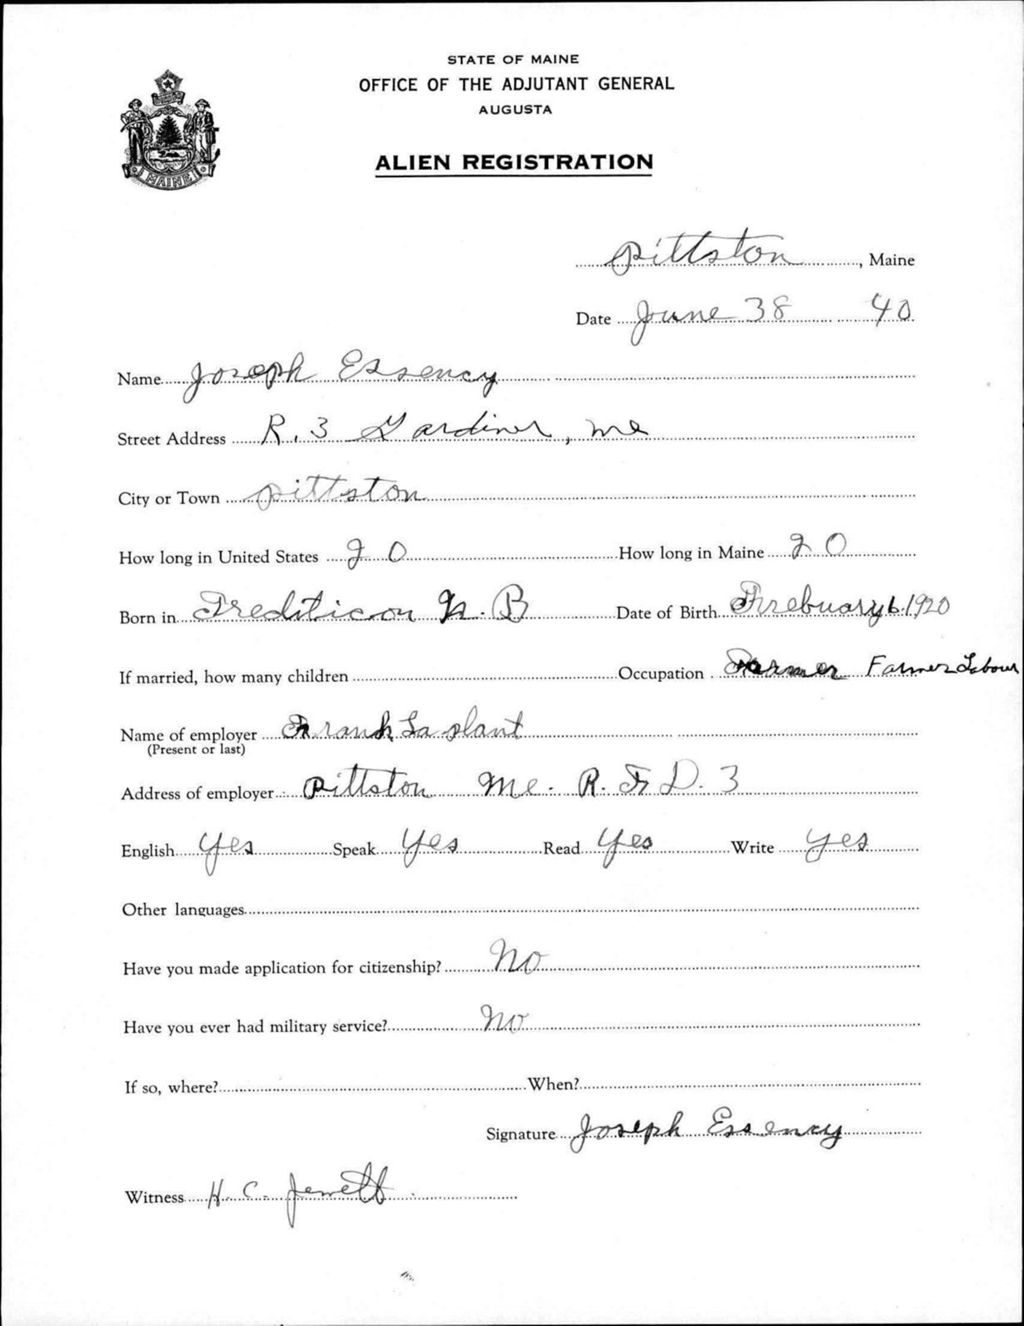 STATE OF MAINE
OFFICE OF THE ADJUTANT GENERAL
AUGUSTA
ALIEN REGISTRATION
MAINE
Pittston, Maine
Date June 38 40
Name Joseph Essency
Street Address R. 3 Gardiner, Me
City or Town Pittston
How long in United States 20 How long in Maine 20
Born in Frediticon N. B Date of Birth Frebuary 6. 1920
If married, how many children Occupation Farmer Farmer Labour
Name of employer Frank La plant
(Present or last)
Address of employer Pittston Me. R. F D. 3
English Yes Speak Yes Read Yes Write Yes
Other languages
Have you made application for citizenship? No
Have you ever had military service? No
If so, where? When?
Signature Joseph Essency
Witness H. C. Jewett